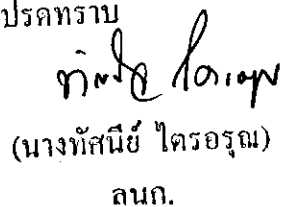 ปรดทราบ
(นางทัศนีย์ ไตรอรุณ)
ลนก.